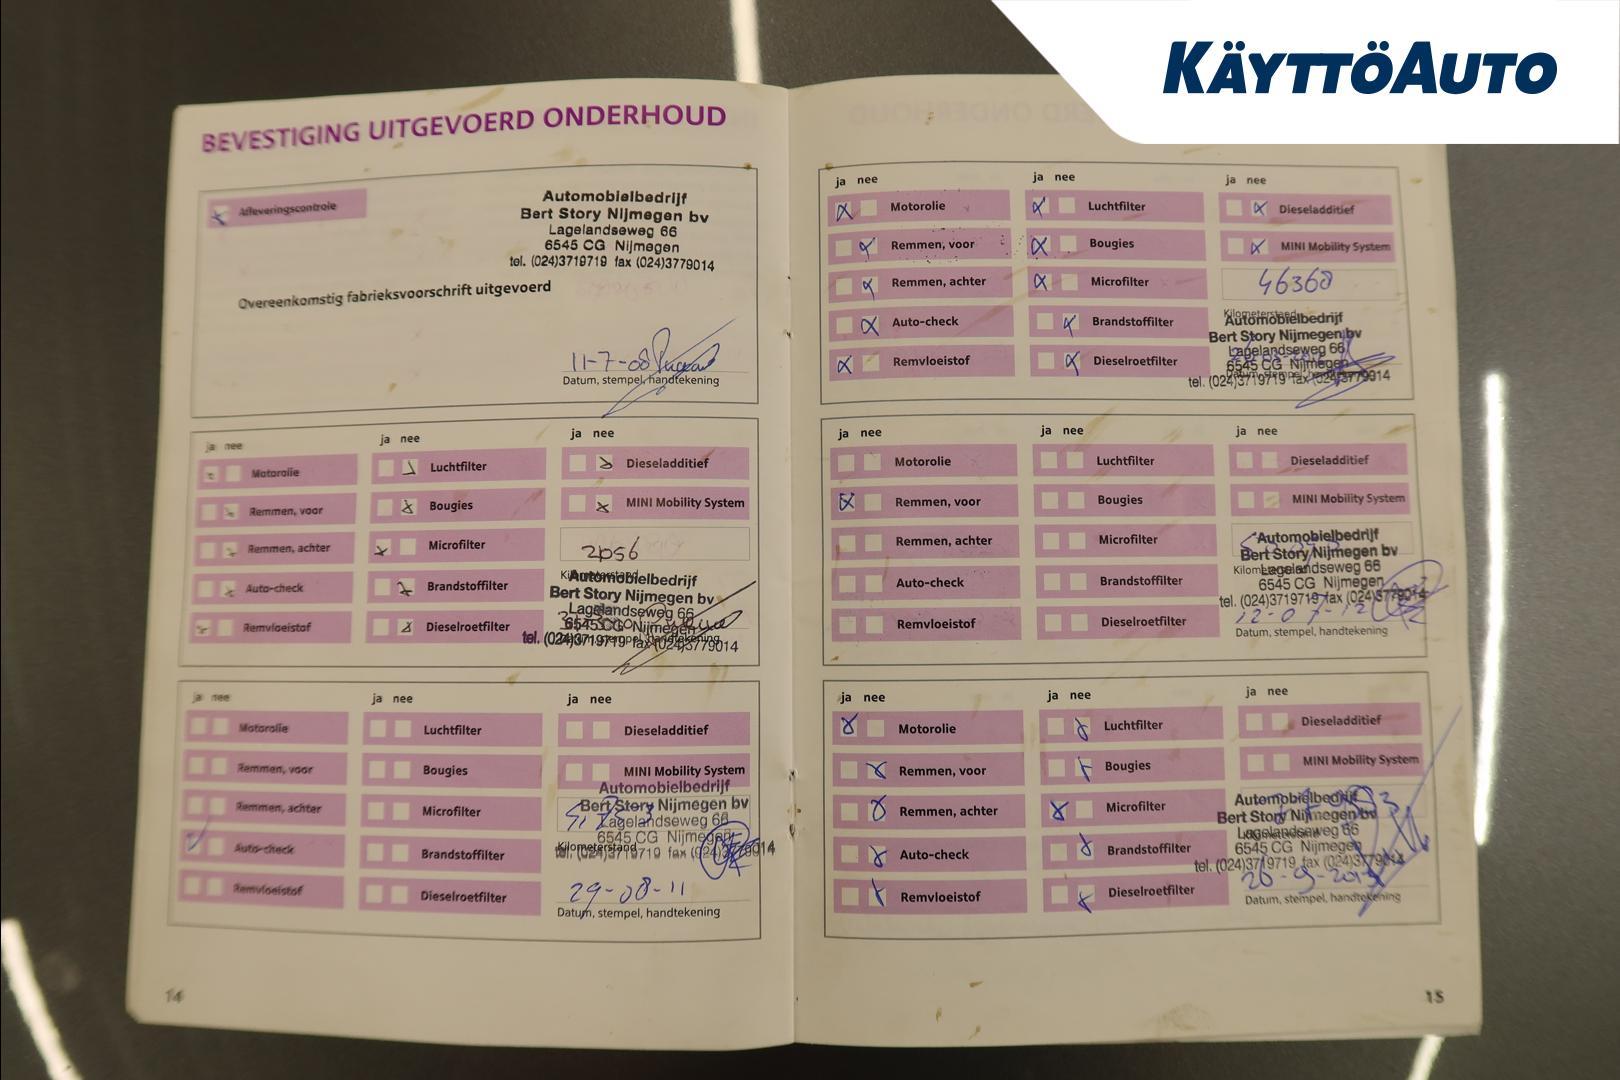 KÄYTTÖAUTO
BEVESTIGING UITGEVOERD ONDERHOUD
Afleveringscontrole
Automobielbedrijf
Bert Story Nijmegen bv
Lagelandseweg 66
6545 CG Nijmegen
tel. (024)3719719 fax (024)3779014
Overeenkomstig fabrieksvoorschrift uitgevoerd
11-7-08
Datum, stempel, handtekening
ja nee
ja nee
ja nee
Motorolie
Luchtfilter
Dieseladditief
Remmen, voor
Bougies
MINI Mobility System
Remmen, achter
Microfilter
Auto-check
Brandstoffilter
Kilometerstand
Automobielbedrijf
Bert Story Nijmegen bv
Lagelandseweg 66
Remvloeistof
Dieselroetfilter
6545 CG Nijmegen
tel. (024)3719719 fax (024)3779014
Datum, stempel, handtekening
ja nee
ja nee
ja nee
Motorolie
Luchtfilter
Dieseladditief
Remmen, voor
Bougies
MINI Mobility System
Automobielbedrijf
Remmen, achter
Microfilter
Bert Story Nijmegen bv
Lagelandseweg 66
6545 CG Nijmegen
Auto-check
Brandstoffilter
Kilometerstand
tel. (024)3719719 fax (024)3779014
Remvloeistof
Dieselroetfilter
29-08-11
Datum, stempel, handtekening
14
ja nee
ja nee
ja nee
Motorolie
Luchtfilter
Dieseladditief
Remmen, voor
Bougies
MINI Mobility System
Remmen, achter
Microfilter
46368
Kilometerstand
Auto-check
Brandstoffilter
Automobielbedrijf
Bert Story Nijmegen bv
Lagelandseweg 66
Remvloeistof
Dieselroetfilter
6545 CG Nijmegen
Datum, stempel, handtekening
tel. (024)3719719 fax (024)3779014
ja nee
ja nee
ja nee
Motorolie
Luchtfilter
Dieseladditief
Remmen, voor
Bougies
MINI Mobility System
Remmen, achter
Microfilter
Automobielbedrijf
Bert Story Nijmegen bv
Kilometerstand
Lagelandseweg 66
Auto-check
Brandstoffilter
6545 CG Nijmegen
tel. (024)3719719 fax (024)3779014
12-07-12
Remvloeistof
Dieselroetfilter
Datum, stempel, handtekening
ja nee
ja nee
ja nee
Motorolie
Luchtfilter
Dieseladditief
Remmen, voor
Bougies
MINI Mobility System
Remmen, achter
Microfilter
Automobielbedrijf
Bert Story Nijmegen bv
Kilometerstand
Lagelandseweg 66
Auto-check
Brandstoffilter
6545 CG Nijmegen
tel. (024)3719719 fax (024)3779014
Remvloeistof
Dieselroetfilter
Datum, stempel, handtekening
15